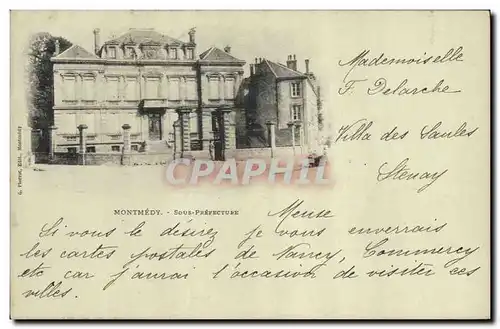 G. Pierrot, Edit., Montmédy
CPAPHIL
MONTMÉDY. - SOUS-PRÉFECTURE
Mademoiselle
F. Delarche
Villa des Saules
Stenay
Meuse
Si vous le désirez je vous enverrais
les cartes postales de Nancy, Commercy
etc car j'aurai l'occasion de visiter ces
villes.